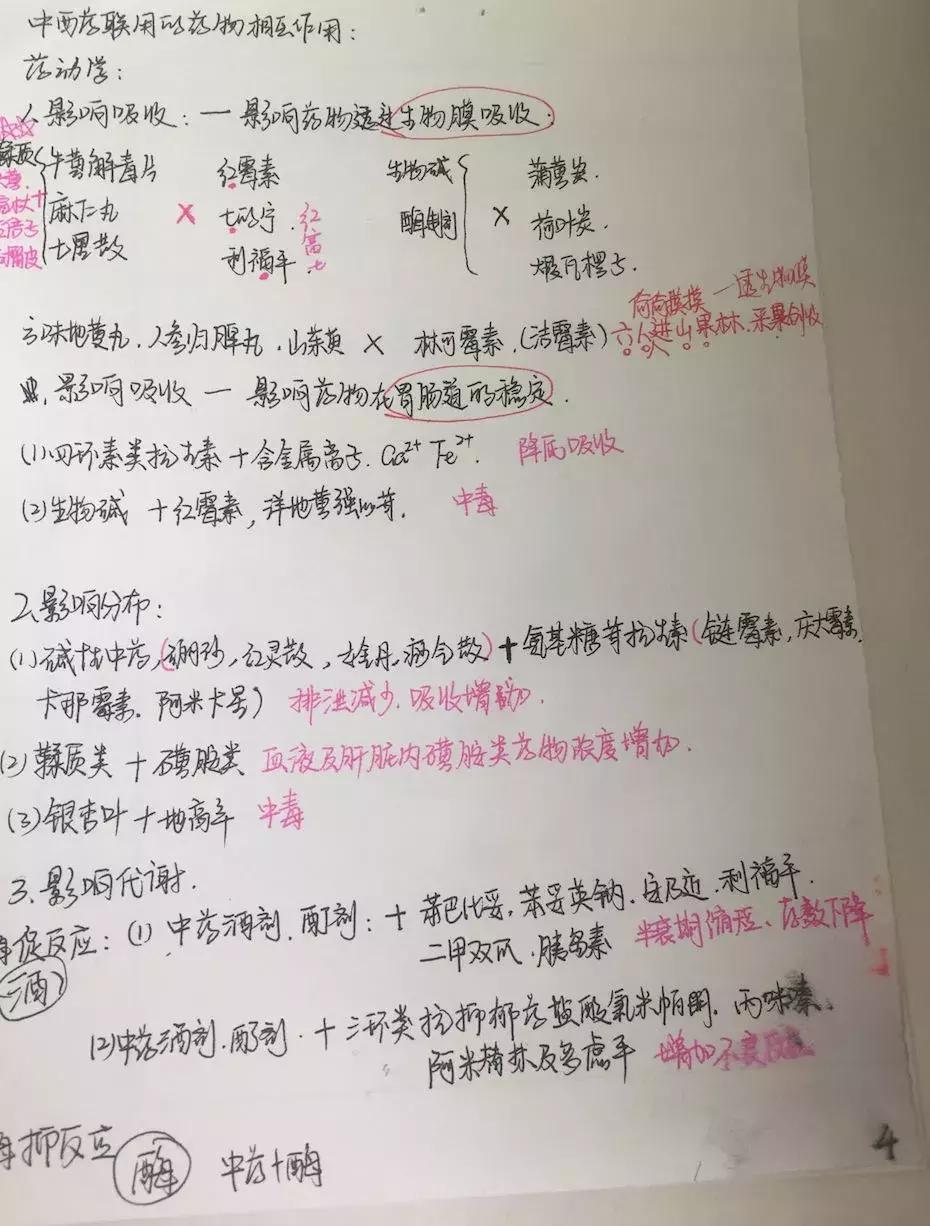 中西药联用的药物相互作用：
药动学：
1.影响吸收：— 影响药物透过生物膜吸收.
鞣质 牛黄解毒片 红霉素 生物碱 蒲黄炭.
麻仁丸 × 士的宁. 红 酶制剂 × 荷叶炭.
七厘散 利福平 煅瓦楞子.
荷荷膜摸 — 透生物膜
六味地黄丸.人参归脾丸.山茱萸 × 林可霉素.(洁霉素) 六人进山果林.采果创收
影响吸收 — 影响药物在胃肠道的稳定.
(1)四环素类抗生素+含金属离子.Ca²⁺ Fe²⁺. 降低吸收
(2)生物碱 +红霉素,洋地黄强心苷. 中毒
2.影响分布：
(1)碱性中药,(硼砂.红灵散,痧气散)+氨基糖苷抗生素(链霉素,庆大霉素.
卡那霉素.阿米卡星) 排泄减少.吸收增加.
(2)鞣质类 + 磺胺类 血液及肝脏内磺胺类药物浓度增加.
(3)银杏叶+地高辛 中毒
3.影响代谢.
促反应：(1)中药酒剂.酊剂：+ 苯巴比妥,苯妥英钠.安乃近.利福平.
酒 二甲双胍.胰岛素 半衰期缩短、药效下降
(2)中药酒剂.酊剂.+三环类抗抑郁药盐酸氯米帕明.丙咪嗪.
阿米替林及多虑平 增加不良反应
抑反应 酶 中药+酶
4